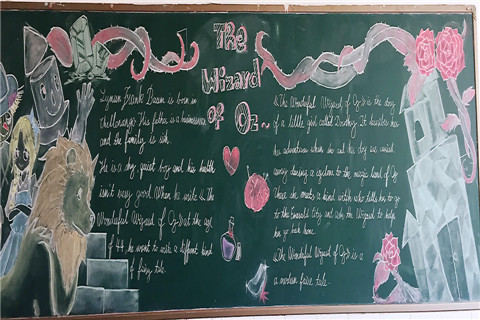 The
Wizard
of Oz~
Lyman Frank Baum is born in
This father is a businessman
and the family is rich.
He is a shy, quiet boy and his health
isn't very good. When he write 《The
Wonderful Wizard of Oz》 at the age
of 44, he want to write a different kind
of fairy tale.
《The Wonderful Wizard of Oz》 is the story
of a little girl called Dorothy. It describes her
her adventure when she and the dog are carried
away during a cyclone to the magic land of Oz
There she meets a kind witch who tells her to go
to the Emerald City and ask the Wizard to help
her go back home.
《The Wonderful Wizard of Oz》 is a
a modern fairy tale.